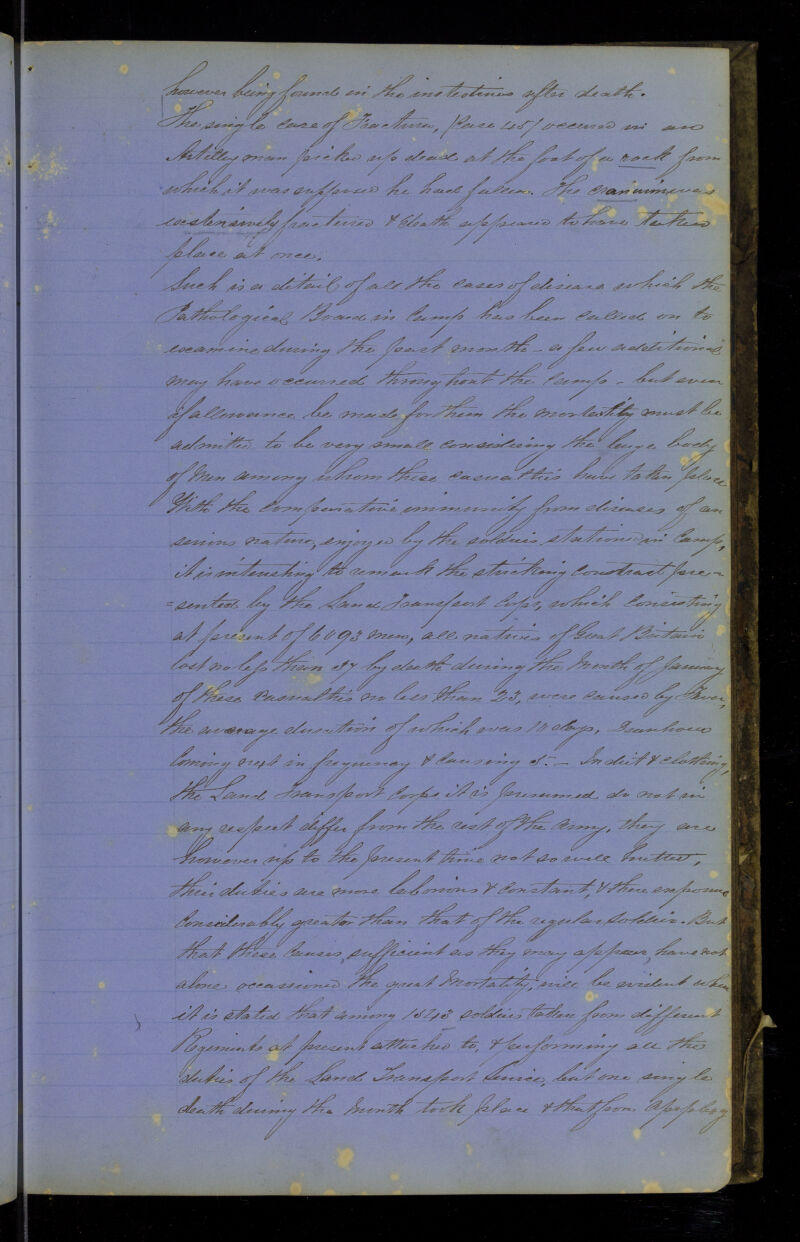 however being found in the intestines after death.
The single case of Fracture, (Case 45) occured in an
Artillery man picked up dead at the foot of a rock from
which it was supposed he had fallen. The cranium was
extensively fractured & death appeared to have taken
place at once.
Such is a detail of all the cases of disease which the
Pathological Board in Camp has been called on to
examine during the past month - a few additional
may have occurred throughout the Camp - but even
if allowance be made for them the mortality must be
admitted to be very small considering the large body
of Men among whom these casualties have taken place
With the comparative immunity from diseases of an
serious nature, enjoyed by the soldiers stationed in Camp,
it is interesting to remark the striking contrast pre-
=sented by the Land Transport Corps, which consisting
at present of 6093 men, all natives of Great Britain
lost no less than 37 by death during the Month of January
of these casualties no less than 23, were caused by Fever,
the average duration of which was 10 days, Diarrhoea
coming next in frequency & causing 5. - In diet & clothing,
the Land Transport Corps it is presumed do not in
any respect differ from the rest of the Army, they are
however up to the present time not so well hutted,
their duties are more laborious & constant, & their exposure
considerably greater than that of the regular soldier. But
that these causes, sufficient as they may appear, have not
alone occasioned the great Mortality, will be evident when
it is stated that among 1343 soldiers taken from different
Regiments at present attached to, & performing all the
duties of the Land Transport Service, but one single
death during the Month took place & that from Apoplexy